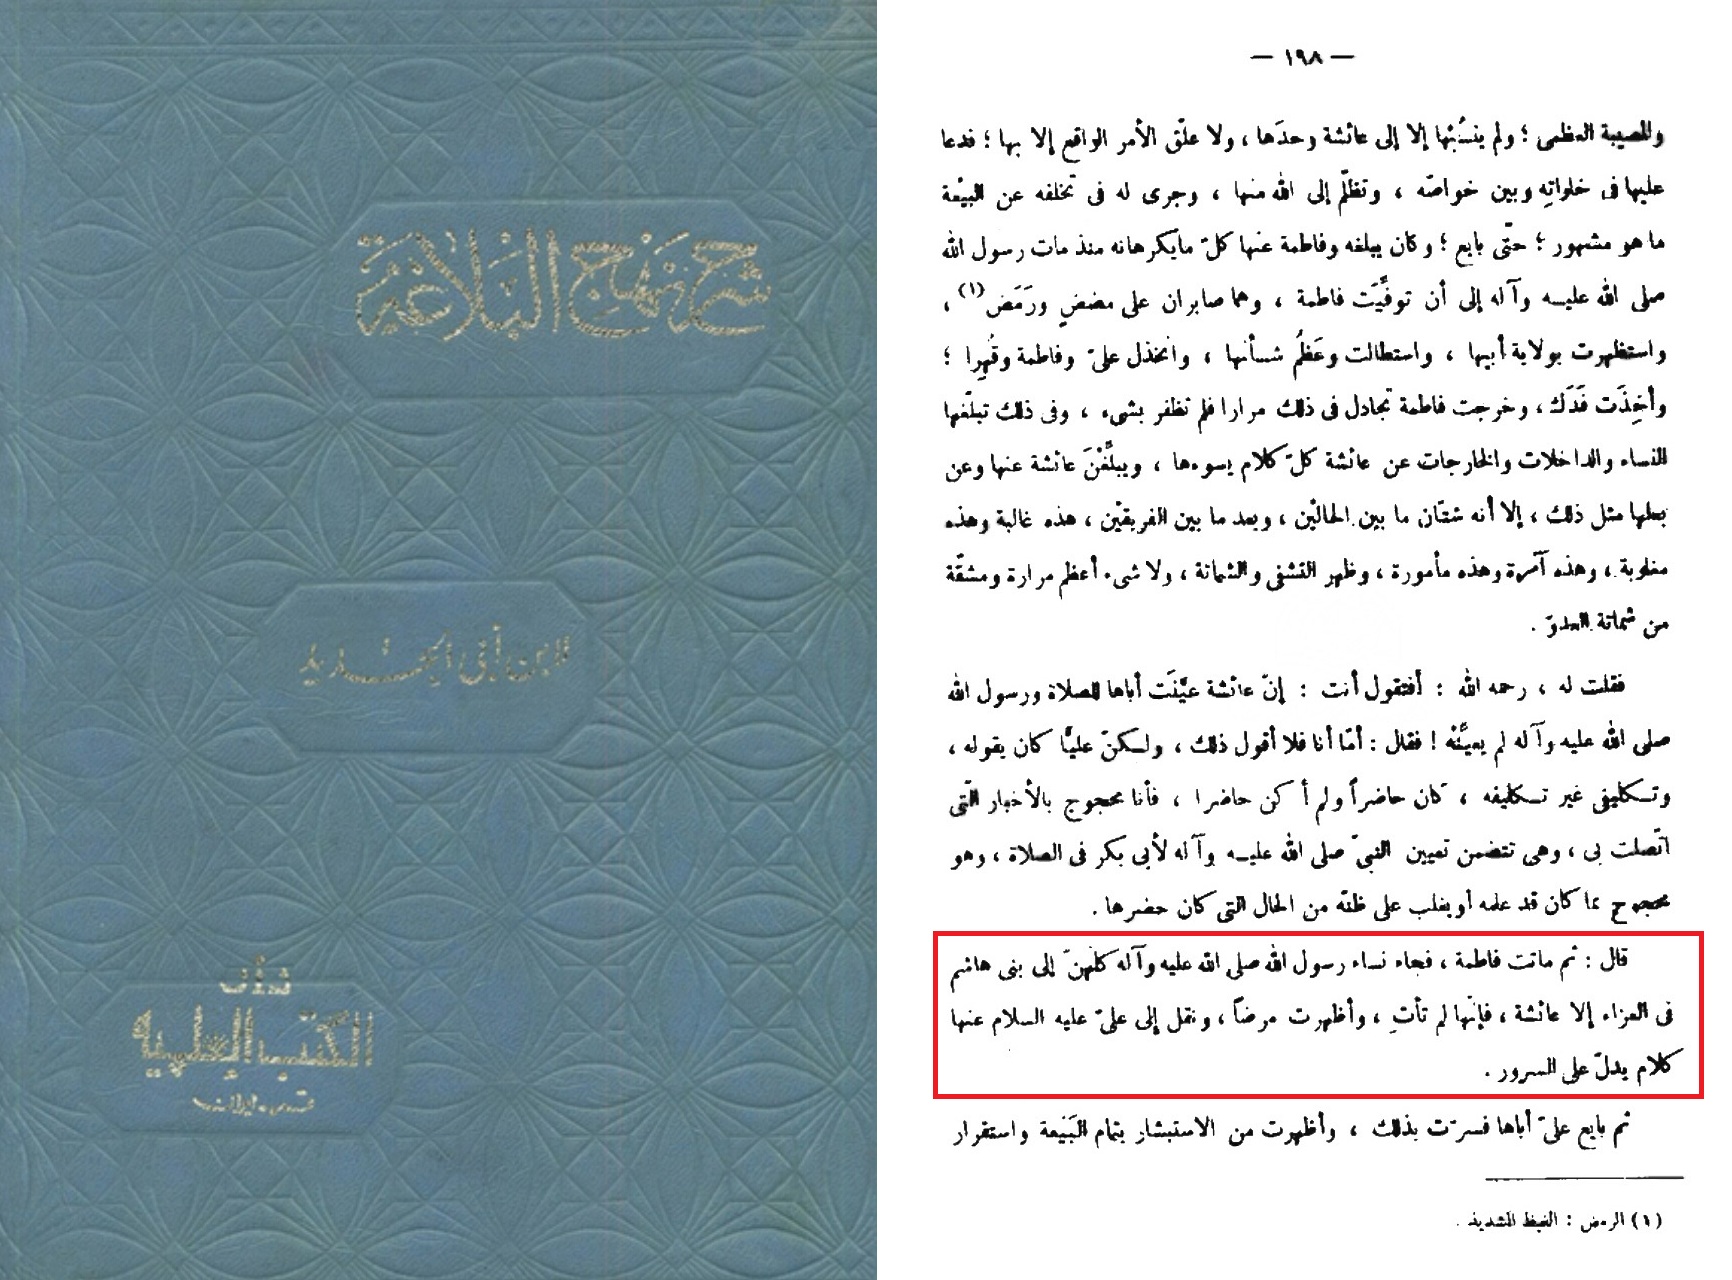 شرح نهج البلاغة
لابن أبي الحديد
الكتب العلمية
— ١٩٨ —
والمصيبة العظمى ؛ ولم ينسُبْها إلا إلى عائشة وحدَها ، ولا علّق الأمر الواقع إلا بها ؛ فدعا
عليها فى خلواتِه وبين خواصّه ، وتظلّم إلى الله منها ، وجرى له فى تخلفه عن البيْعة
ما هو مشهور ؛ حتّى بايع ؛ وكان يبلغه وفاطمة عنها كلّ ما يكرهانه منذ مات رسول الله
صلى الله عليه وآله إلى أن توفِّيَت فاطمة ، وهما صابران على مضضٍ ورَمَض (١) ،
واستظهرت بولاية أبيها ، واستطالت وعَظُم شأنها ، وانخذل علىّ وفاطمة وقُهِرا ؛
وأُخِذَت فَدَك ، وخرجت فاطمة تجادل فى ذلك مرارا فلم تظفر بشىء ، وفى ذلك تبلّغها
النساء والداخلات والخارجات عن عائشة كلّ كلام يسوءها ، ويبلِّغْنَ عائشة عنها وعن
بعلها مثل ذلك ، إلا أنه شتّان ما بين الحاليْن ، وبعد ما بين الفريقيْن ، هذه غالبة وهذه
مغلوبة ، وهذه آمرة وهذه مأمورة ، وظهر التشفى والشماتة ، ولا شىء أعظم مرارة ومشقّة
من شماتة العدوّ .
فقلت له ، رحمه الله : أفتقول أنت : إنّ عائشة عيَّنَت أباها للصلاة ورسول الله
صلى الله عليه وآله لم يعيِّنْه ! فقال : أمّا أنا فلا أقول ذلك ، ولكنّ عليًّا كان يقوله ،
وتكليفى غير تكليفه ، كان حاضراً ولم أكن حاضرا ، فأنا محجوج بالأخبار الّتى
اتّصلت بى ، وهى تتضمن تعيين النبىّ صلى الله عليه وآله لأبى بكر فى الصلاة ، وهو
محجوج بما كان قد علمه أو يغلب على ظنّه من الحال التى كان حضرها .
قال : ثم ماتت فاطمة ، فجاء نساء رسول الله صلى الله عليه وآله كلهنّ إلى بنى هاشم
فى العزاء إلا عائشة ، فإنّها لم تأتِ ، وأظهرت مرضاً ، ونقل إلى علىّ عليه السلام عنها
كلام يدلّ على السرور .
ثم بايع علىّ أباها فسرّت بذلك ، وأظهرت من الاستبشار بتمام البَيْعة واستقرار
(١) الرمض : الغيظ الشديد .